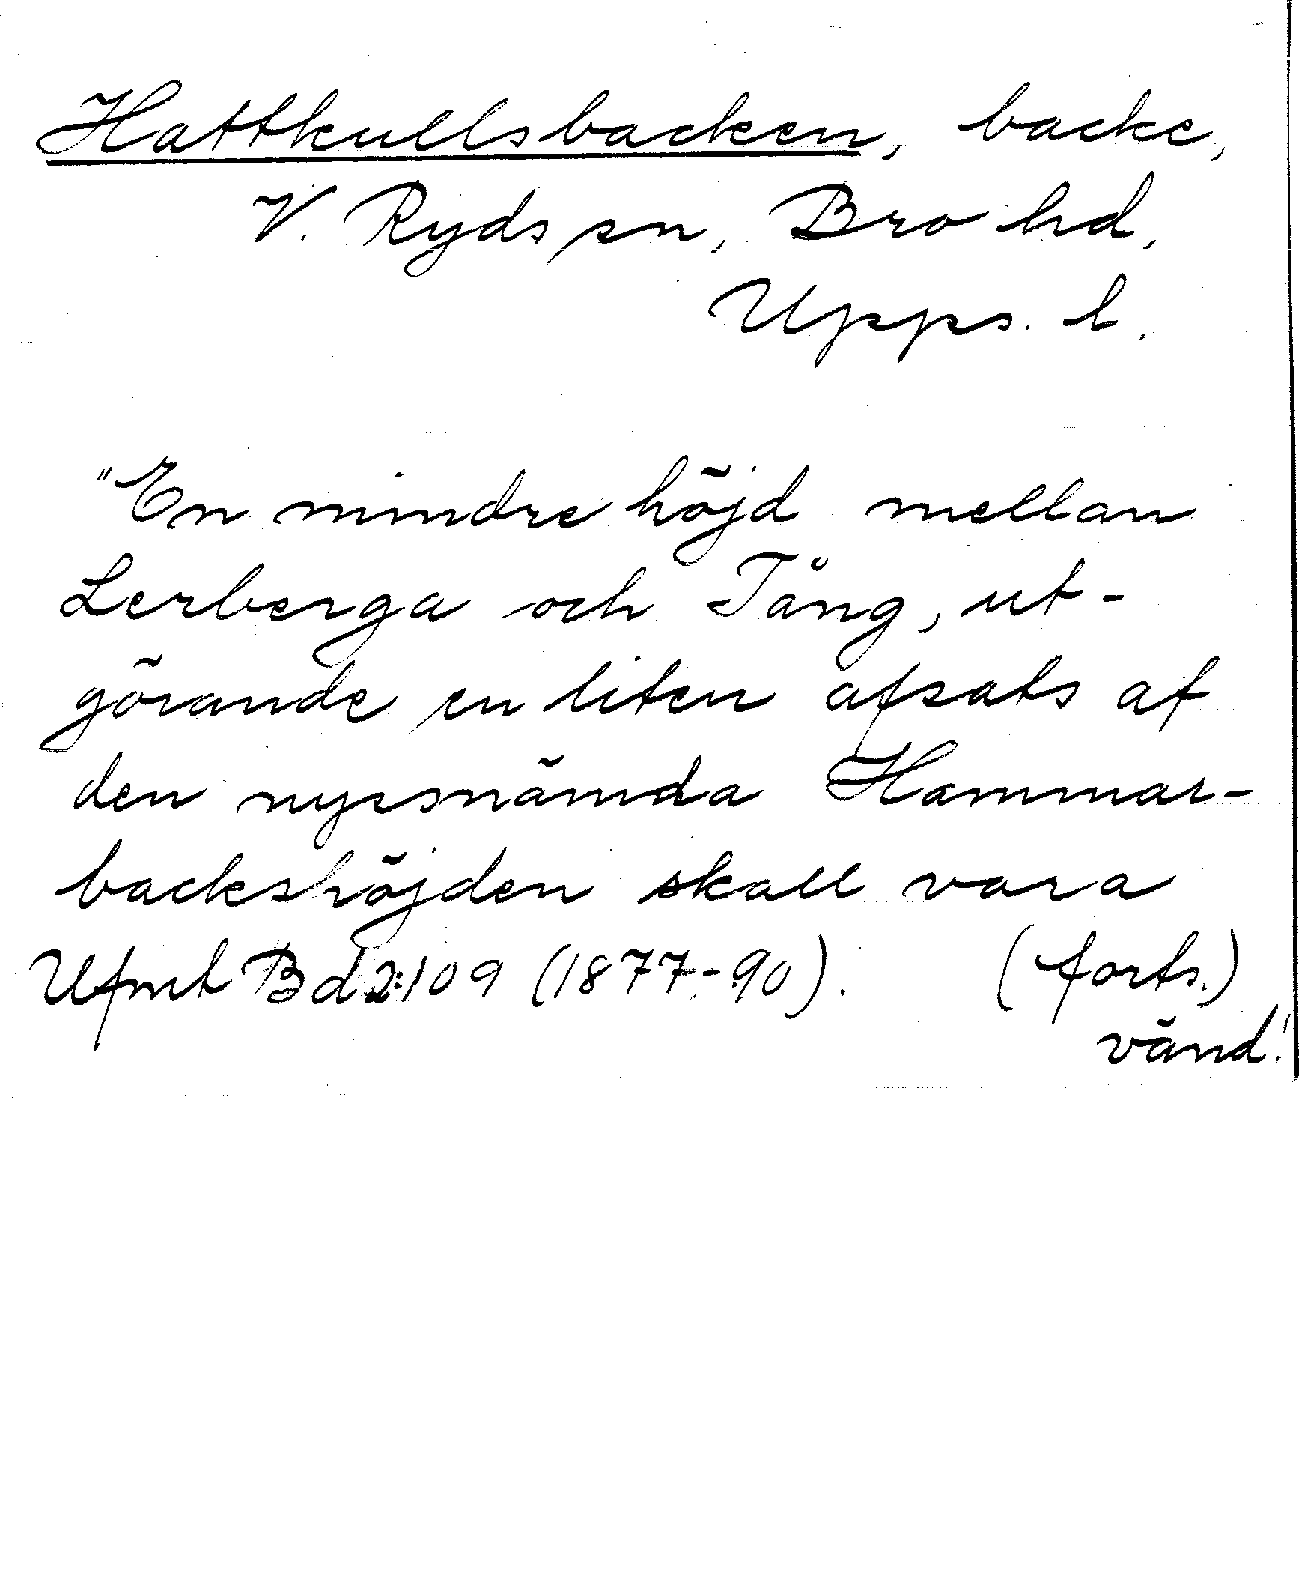 Hattkullsbacken, backe,
V. Ryds sn, Bro hd,
Upps. l.
"En mindre höjd mellan
Lerberga och Tång, ut-
görande en liten afsats af
den nyssnämda Hammar-
backshöjden skall vara
Ufmt Bd 2:109 (1877-90). (forts.)
vänd!